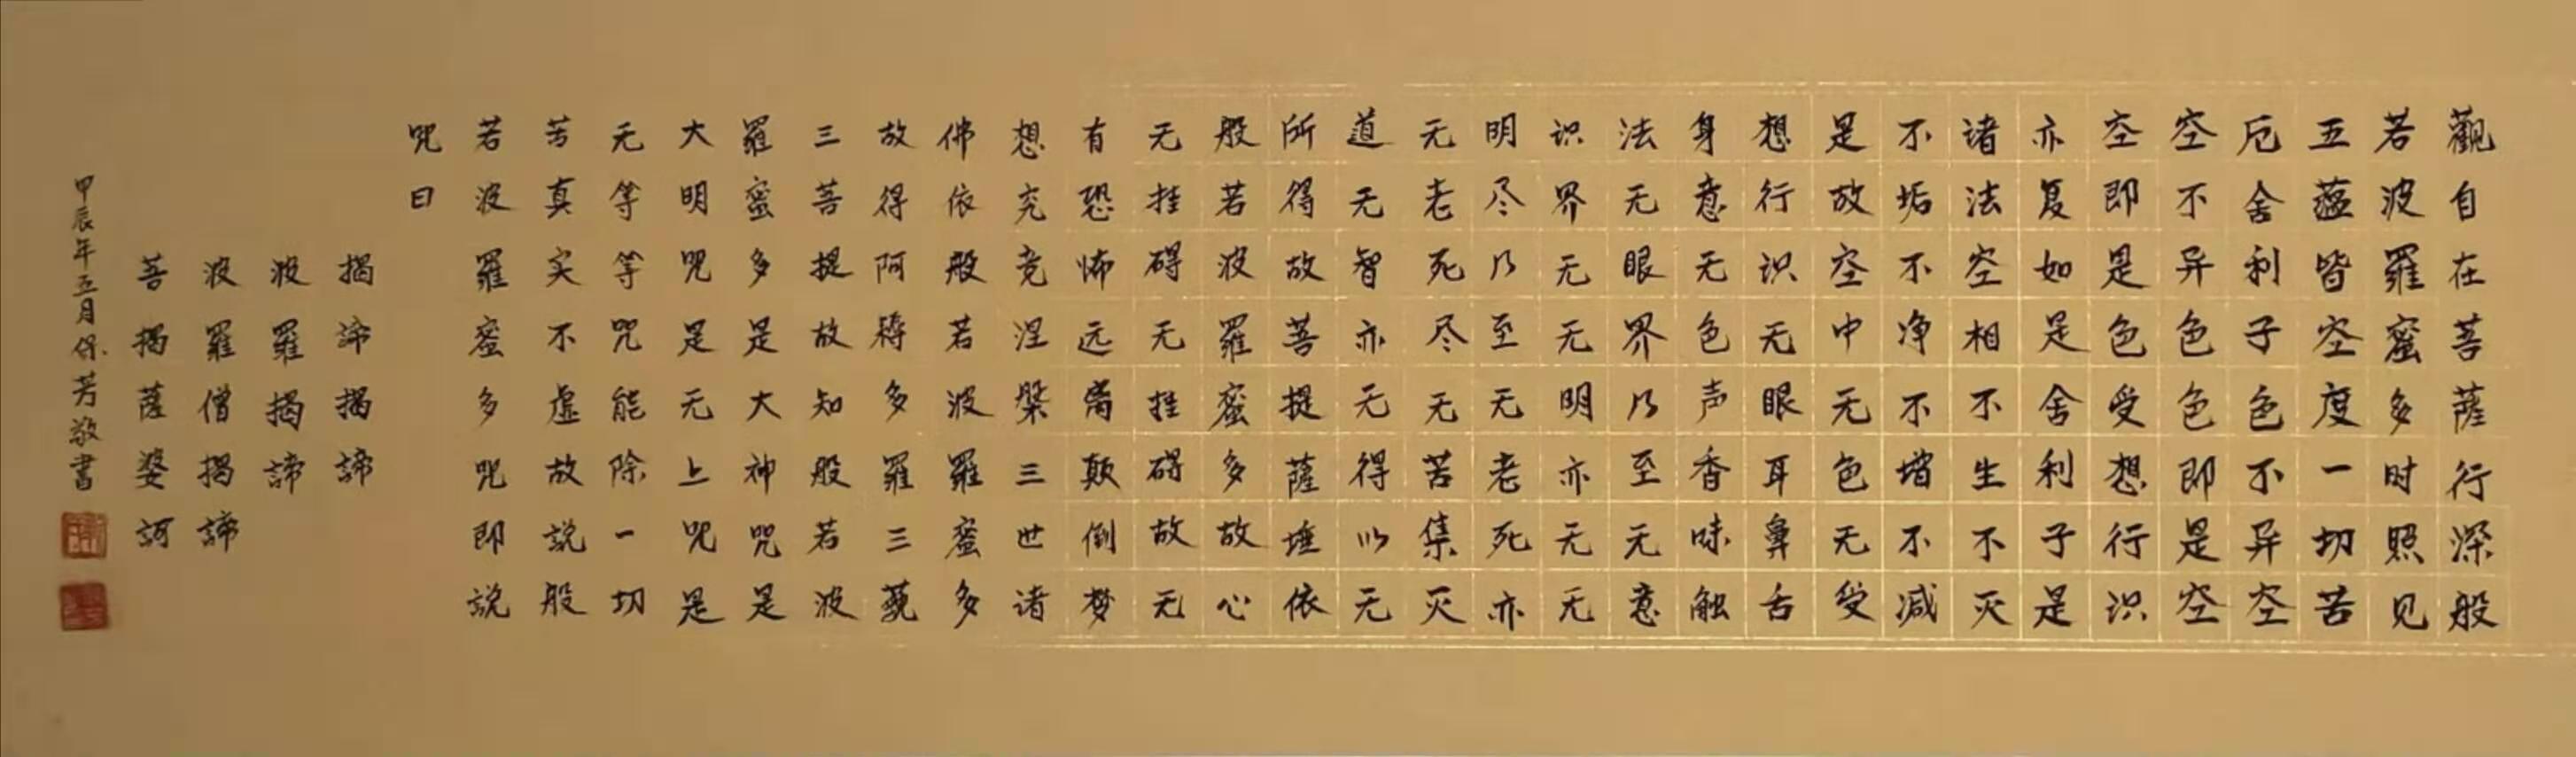 觀自在菩薩行深般
若波羅蜜多时照见
五蕴皆空度一切苦
厄舍利子色不异空
空不异色色即是空
空即是色受想行识
亦复如是舍利子是
诸法空相不生不灭
不垢不净不增不减
是故空中无色无受
想行识无眼耳鼻舌
身意无色声香味触
法无眼界乃至无意
识界无无明亦无无
明尽乃至无老死亦
无老死尽无苦集灭
道无智亦无得以无
所得故菩提薩埵依
般若波羅蜜多故心
无挂碍无挂碍故无
有恐怖远离颠倒梦
想究竟涅槃三世诸
佛依般若波羅蜜多
故得阿耨多羅三藐
三菩提故知般若波
羅蜜多是大神咒是
大明咒是无上咒是
无等等咒能除一切
苦真实不虚故説般
若波羅蜜多咒即説
咒曰
揭諦揭諦
波羅揭諦
波羅僧揭諦
菩揭薩婆訶
甲辰年五月保芳敬書